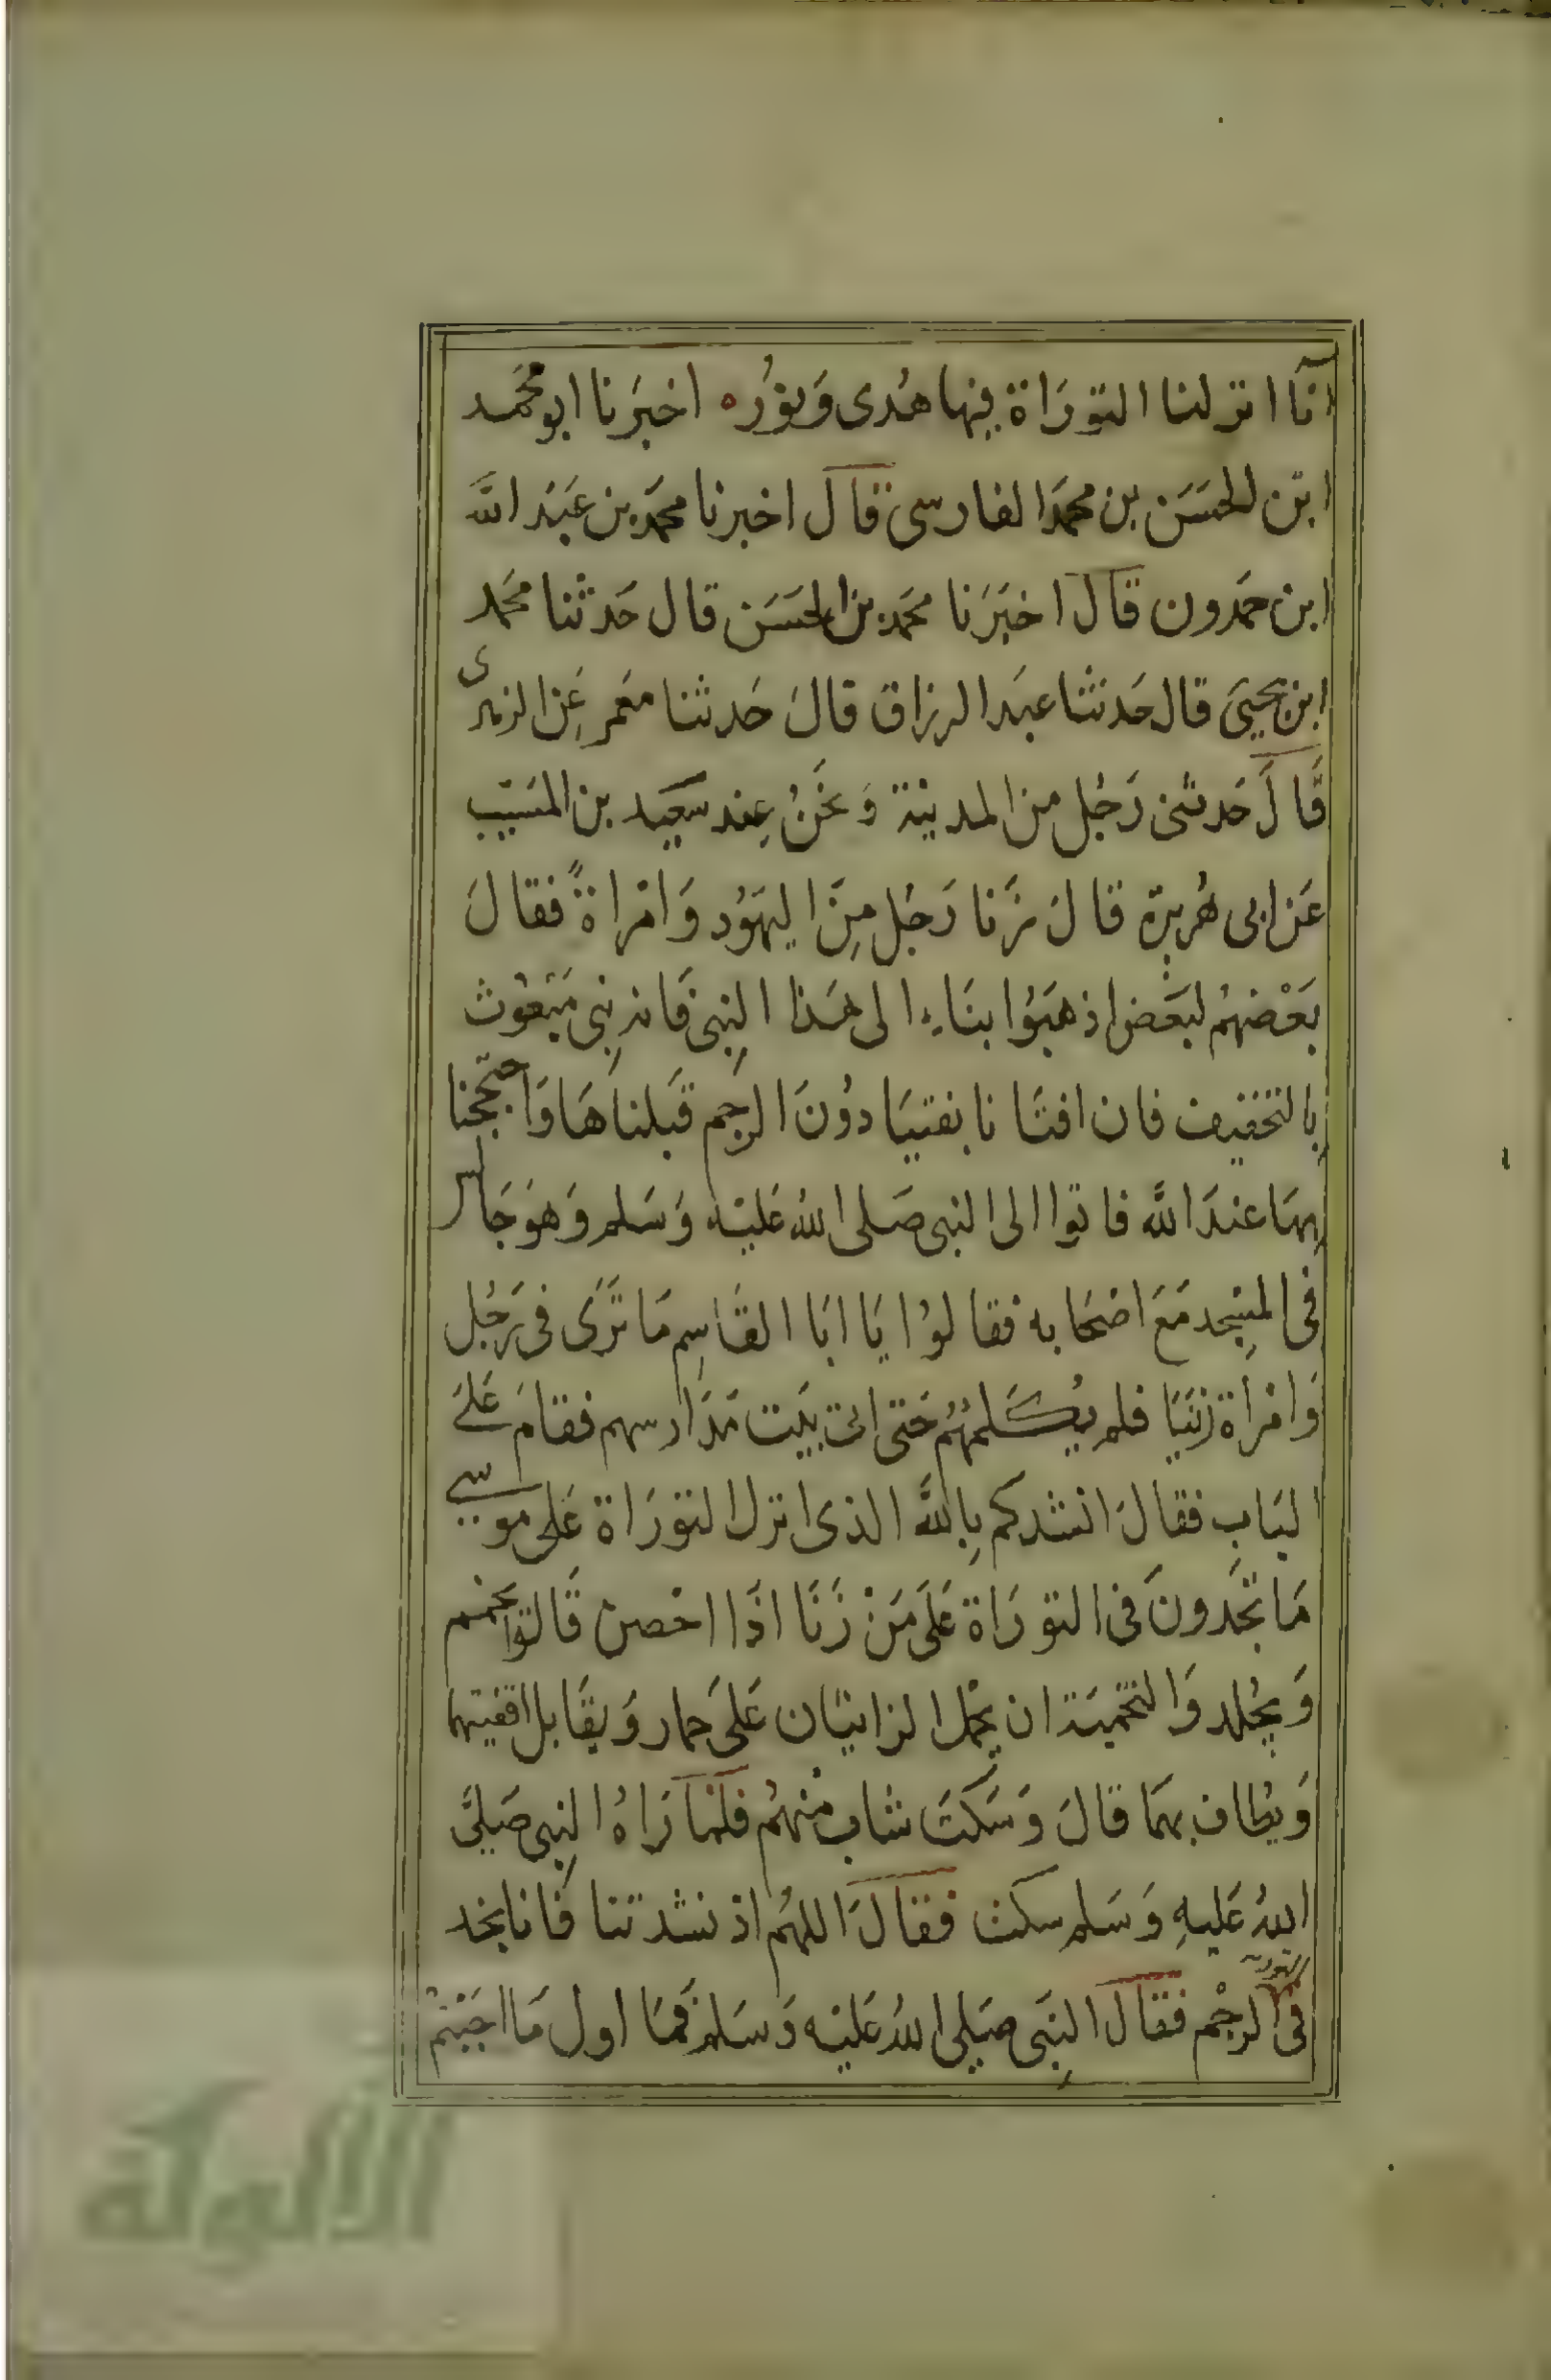 انا انزلنا التوراة فيها هُدى وَنورُه اخبرَنا ابو محمد
ابن الحسَن بن محمد الفارسى قال اخبرنا محمد بن عَبد الله
ابن حمدون قال اخبَرَنا محمد بن الحسَن قال حَدثنا محمد
ابن يحيىَ قال حَدثنا عبَد الرزاق قالَ حَدثنا معمر عَن الزهرى
قَالَ حَدثنى رَجُل من المدينة وَنحَنُ عِند سَعيد بن المسَيب
عَن ابى هُريرة قالَ زَنا رَجُل مِنَ اليهَوُد وَامْراةً فقالَ
بَعْضهمُ لبَعَض اذهبَوُا بنَاءِ الى هَذا النِبى فَانه نِبى مَبَعُوث
بالتخفيف فان افتَانا بفتيَا دوُنَ الرجم قَبلناهَا وَاحتججنا
بهَا عندَ الله فاتوا الى النبى صَلى اللهُ عَليْه وَسَلم وَهوَ جَالس
فى المسِجد مَعَ اصْحَابه فقالوُا يَا ابَا القَاسِم مَا ترَى فى رَجُل
وَامْرأة زنَيَا فلم يُكَلمهُم حَتى اتى بَيت مَدَارسهم فقامَ عَلىَ
البَابِ فقالَ انشدكم بِالله الذى انزل التورَاة عَلى موسى
مَا تجَدونَ فى التورَاة عَلىَ مَنْ زَنَا اذَا احْصن قَالوا يحمم
وَيجُلد وَالتحميَة ان يحمْل الزانيَان عَلىَ حمار وَيقَابل اقفيتهما
وَيطُاف بهمَا قالَ وَسَكتَ شاب منْهمُ فلما رَاهُ النِبى صَلىَ
اللهُ عَليهِ وَسَلم سكت فقالَ اللهُم اذ نشدتنا فَانا نجد
فى التوراة الرجْم فقال النِبَى صَلى اللهُ عَليْه وَسَلم فَمَا اول مَا اجَبْتمْ
الألوكة